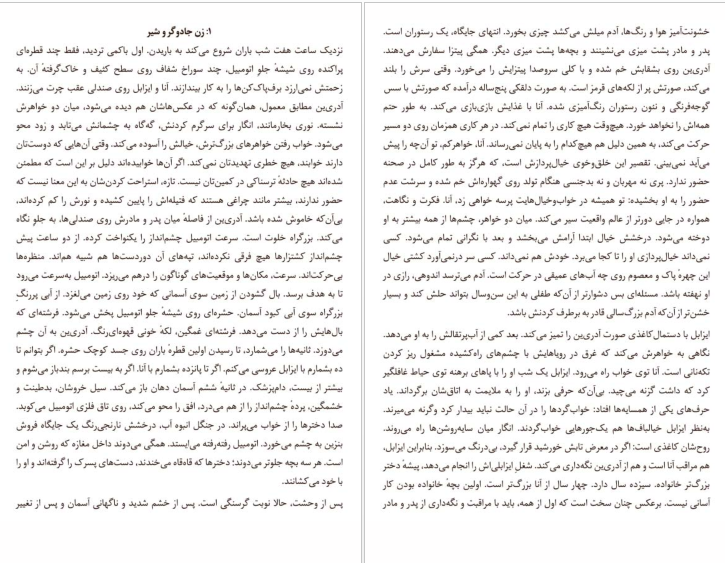 ۱: زن جادوگر و شیر
نزدیک ساعت هفت شب باران شروع می‌کند به باریدن. اول باکمی تردید، فقط چند قطره‌ای
پراکنده روی شیشهٔ جلو اتومبیل، چند سوراخ شفاف روی سطح کثیف و خاک‌گرفتهٔ آن. به
زحمتش نمی‌ارزد برف‌پاک‌کن‌ها را به کار بیندازند. آنا و ایزابل روی صندلی عقب چرت می‌زنند.
آدری‌ین مطابق معمول، همان‌گونه که در عکس‌هاشان هم دیده می‌شود، میان دو خواهرش
نشسته. نوری بخارمانند، انگار برای سرگرم کردنش، گه‌گاه به چشمانش می‌تابد و زود محو
می‌شود. خواب رفتن خواهرهای بزرگ‌ترش، خیالش را آسوده می‌کند. وقتی آن‌هایی که دوست‌تان
دارند خوابند، هیچ خطری تهدیدتان نمی‌کند. اگر آن‌ها خوابیده‌اند دلیل بر این است که مطمئن
شده‌اند هیچ حادثهٔ ترسناکی در کمین‌تان نیست. تازه، استراحت کردن‌شان به این معنا نیست که
حضور ندارند، بیشتر مانند چراغی هستند که فتیله‌اش را پایین کشیده و نورش را کم کرده‌اند،
بی‌آن‌که خاموش شده باشد. آدری‌ین از فاصلهٔ میان پدر و مادرش روی صندلی‌ها، به جلو نگاه
می‌کند. بزرگراه خلوت است. سرعت اتومبیل چشم‌انداز را یکنواخت کرده. از دو ساعت پیش
چشم‌انداز کشتزارها هیچ فرقی نکرده‌اند، تپه‌های آن دوردست‌ها هم شبیه هم‌اند. منظره‌ها
بی‌حرکت‌اند. سرعت، مکان‌ها و موقعیت‌های گوناگون را درهم می‌ریزد. اتومبیل به‌سرعت می‌رود
تا به هدف برسد. بال گشودن از زمین سوی آسمانی که خود روی زمین می‌لغزد. از آبی پررنگِ
بزرگراه سوی آبی کبود آسمان. حشره‌ای روی شیشهٔ جلو اتومبیل پخش می‌شود. فرشته‌ای که
بال‌هایش را از دست می‌دهد. فرشته‌ای غمگین، لکهٔ خونی قهوه‌ای‌رنگ. آدری‌ین به آن چشم
می‌دوزد. ثانیه‌ها را می‌شمارد، تا رسیدن اولین قطرهٔ باران روی جسد کوچک حشره. اگر بتوانم تا
ده بشمارم با ایزابل عروسی می‌کنم. اگر تا پانزده بشمارم با آنا. اگر به بیست برسم بندباز می‌شوم و
بیشتر از بیست، دام‌پزشک. در ثانیهٔ ششم آسمان دهان باز می‌کند. سیل خروشان، بدطینت و
خشمگین، پردهٔ چشم‌انداز را از هم می‌درد، افق را محو می‌کند، روی تاق فلزی اتومبیل می‌کوبد.
صدا دخترها را از خواب می‌پراند. در جنگل انبوه آب، درخشش نارنجی‌رنگ یک جایگاه فروش
بنزین به چشم می‌خورد. اتومبیل رفته‌رفته می‌ایستد. همگی می‌دوند داخل مغازه که روشن و امن
است. هر سه بچه جلوتر می‌دوند؛ دخترها که قاه‌قاه می‌خندند، دست‌های پسرک را گرفته‌اند و او را
با خود می‌کشانند.
پس از وحشت، حالا نوبت گرسنگی است. پس از خشم شدید و ناگهانی آسمان و پس از تغییر
خشونت‌آمیز هوا و رنگ‌ها، آدم میلش می‌کشد چیزی بخورد. انتهای جایگاه، یک رستوران است.
پدر و مادر پشت میزی می‌نشینند و بچه‌ها پشت میزی دیگر. همگی پیتزا سفارش می‌دهند.
آدری‌ین روی بشقابش خم شده و با کلی سروصدا پیتزایش را می‌خورد. وقتی سرش را بلند
می‌کند، صورتش پر از لکه‌های قرمز است. به صورت دلقکی پنج‌ساله درآمده که صورتش با سس
گوجه‌فرنگی و نتون رستوران رنگ‌آمیزی شده. آنا با غذایش بازی‌بازی می‌کند. به طور حتم
همه‌اش را نخواهد خورد. هیچ‌وقت هیچ کاری را تمام نمی‌کند. در هر کاری همزمان روی دو مسیر
حرکت می‌کند، به همین دلیل هم هیچ‌کدام را به پایان نمی‌رساند. آنا، خواهرکم. تو آن‌چه را پیش
می‌آید نمی‌بینی. تقصیر این خلق‌وخوی خیال‌پردازش است، که هرگز به طور کامل در صحنه
حضور ندارد. پری نه مهربان و نه بدجنسی هنگام تولد روی گهواره‌اش خم شده و سرشت عدم
حضور را به او بخشیده: تو همیشه در خواب‌وخیال‌هایت پرسه خواهی زد، آنا. فکرت و نگاهت،
همواره در جایی دورتر از عالم واقعیت سیر می‌کند. میان دو خواهر، چشم‌ها از همه بیشتر به او
دوخته می‌شود. درخشش خیال ابتدا آرامش می‌بخشد و بعد با نگرانی تمام می‌شود. کسی
نمی‌داند خیال‌پردازی او را تا کجا می‌برد. خودش هم نمی‌داند. کسی سر درنمی‌آورد کشتی خیال
این چهرهٔ پاک و معصوم روی چه آب‌های عمیقی در حرکت است. آدم می‌ترسد اندوهی، رازی در
او نهفته باشد. مسئله‌ای بس دشوارتر از آن‌که طفلی به این سن‌وسال بتواند حلش کند و بسیار
خشن‌تر از آن‌که آدم بزرگ‌سالی قادر به برطرف کردنش باشد.
ایزابل با دستمال‌کاغذی صورت آدری‌ین را تمیز می‌کند. بعد کمی از آب‌پرتقالش را به او می‌دهد.
نگاهی به خواهرش می‌کند که غرق در رویاهایش با چشم‌های راه‌کشیده مشغول ریز کردن
تکه‌نانی است. آنا توی خواب راه می‌رود. ایزابل یک شب او را با پاهای برهنه توی حیاط غافلگیر
کرد که داشت گزنه می‌چید. بی‌آن‌که حرفی بزند، او را به ملایمت به اتاق‌شان برگرداند. یاد
حرف‌های یکی از همسایه‌ها افتاد: خواب‌گردها را در آن حالت نباید بیدار کرد وگرنه می‌میرند.
به‌نظر ایزابل خیالباف‌ها هم یک‌جورهایی خواب‌گردند. انگار میان سایه‌روشن‌ها راه می‌روند.
روح‌شان کاغذی است: اگر در معرض تابش خورشید قرار گیرد، بی‌درنگ می‌سوزد. بنابراین ایزابل،
هم مراقب آنا است و هم از آدری‌ین نگه‌داری می‌کند. شغل ایزابلی‌اش را انجام می‌دهد، پیشهٔ دختر
بزرگ‌تر خانواده. سیزده سال دارد. چهار سال از آنا بزرگ‌تر است. اولین بچهٔ خانواده بودن کار
آسانی نیست. برعکس چنان سخت است که اول از همه، باید با مراقبت و نگه‌داری از پدر و مادر